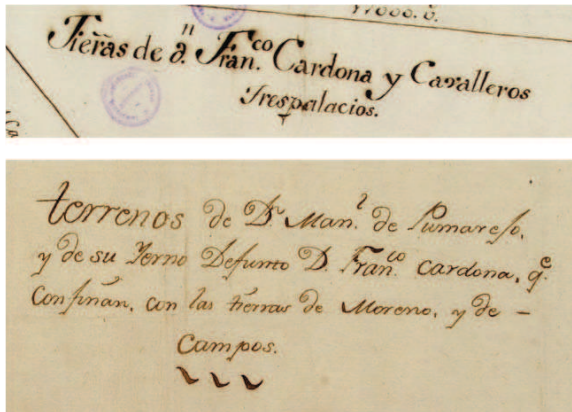 17000. v.
Tierras de dⁿ. Franᶜᵒ. Cardona y Cavalleros
Trespalacios.
terrenos de Dⁿ. Manˡ. de Pumarejo,
y de su Yerno Defunto D. Franᶜᵒ. Cardona, qᵉ.
Confinan, con las tierras de Moreno, y de -
Campos.